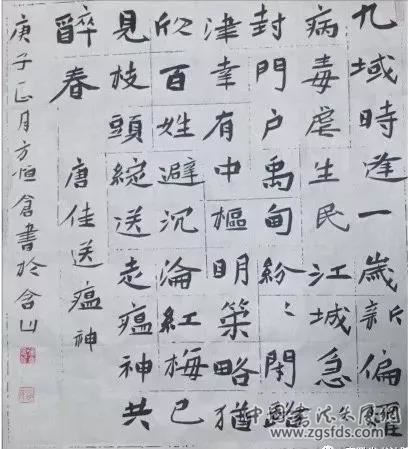 九域時逢一歲新偏罹
病毒虐生民江城急
封門户禹甸紛〻
津幸有中樞明策略猶
欣百姓避沉淪紅梅已
見枝頭綻送走瘟神共
醉春 唐佳送瘟神
庚子正月方恒倉書於含山
www.zgsfds.com